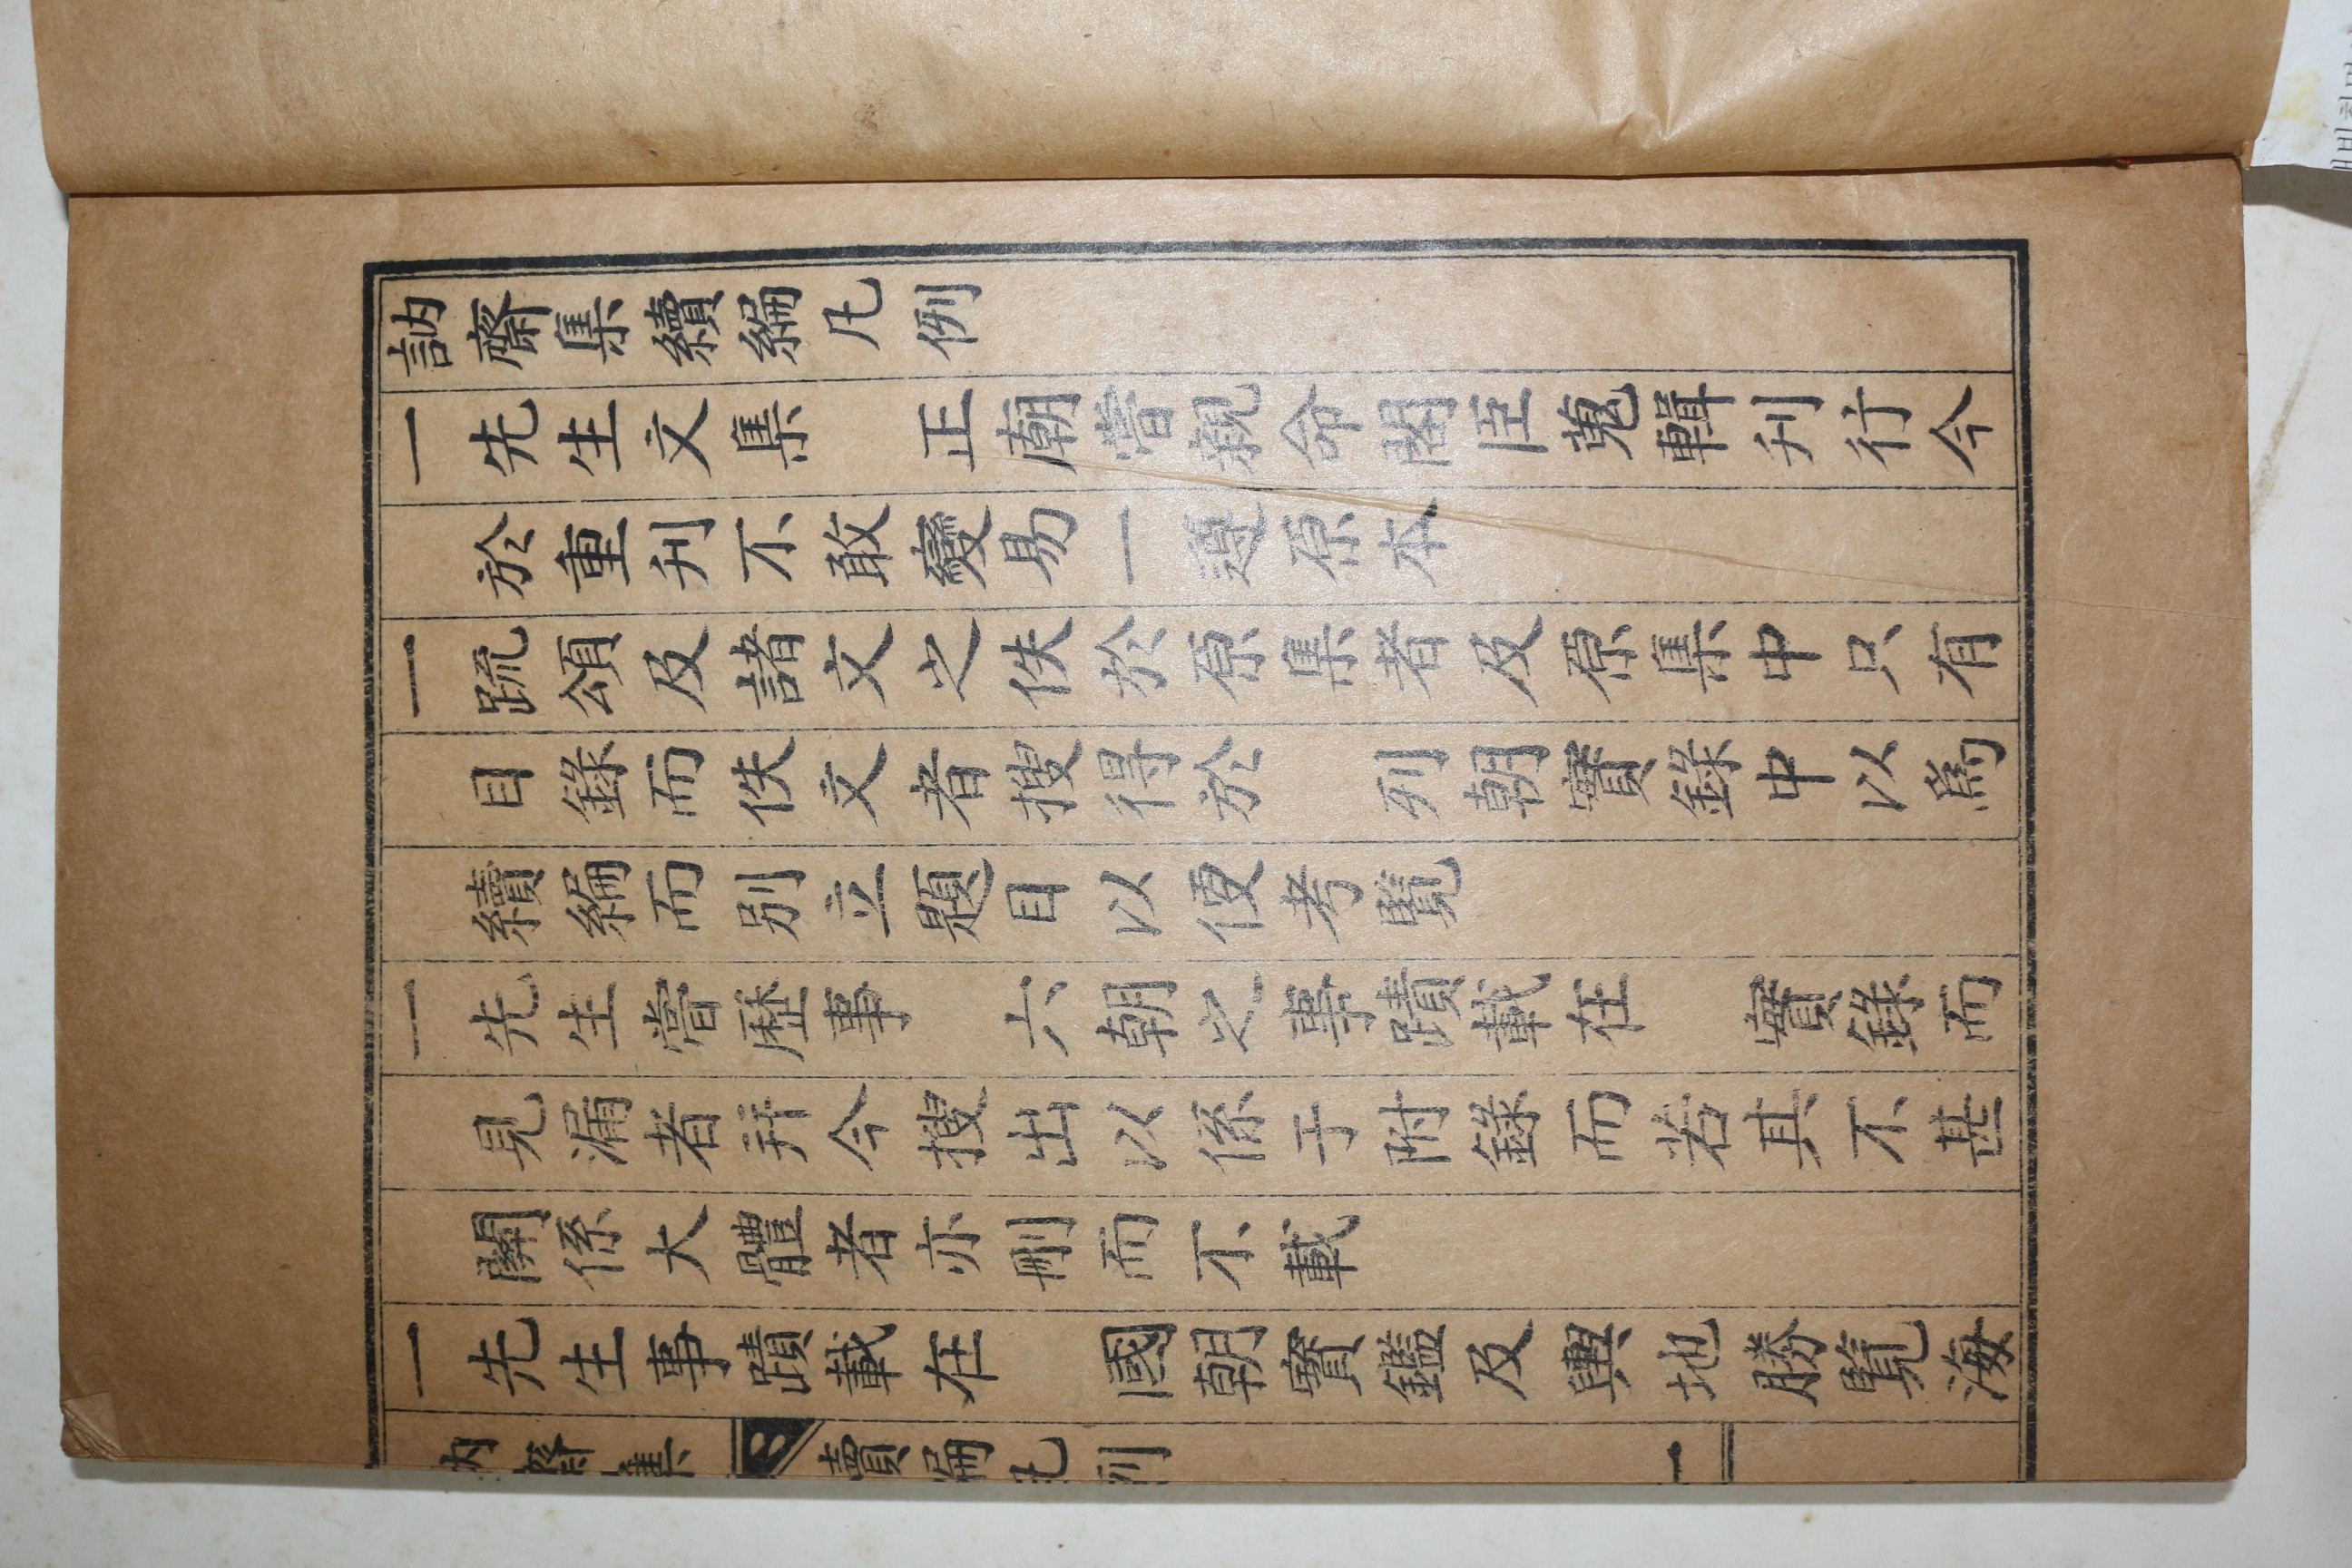 訥齋集續編凡例
一先生文集　正廟嘗親命閣臣蒐輯刊行今
於重刊不敢變易一遵原本
一疏頌及諸文之佚於原集者及原集中只有
目錄而佚文者搜得於　列朝實錄中以爲
續編而別立題目以便考覽
一先生嘗歷事　六朝之事蹟載在　實錄而
見漏者幷今搜出以係于附錄而若其不甚
關係大體者亦刪而不載
一先生事蹟載在　國朝寶鑑及輿地勝覽海
訥齋集　續編凡例　一